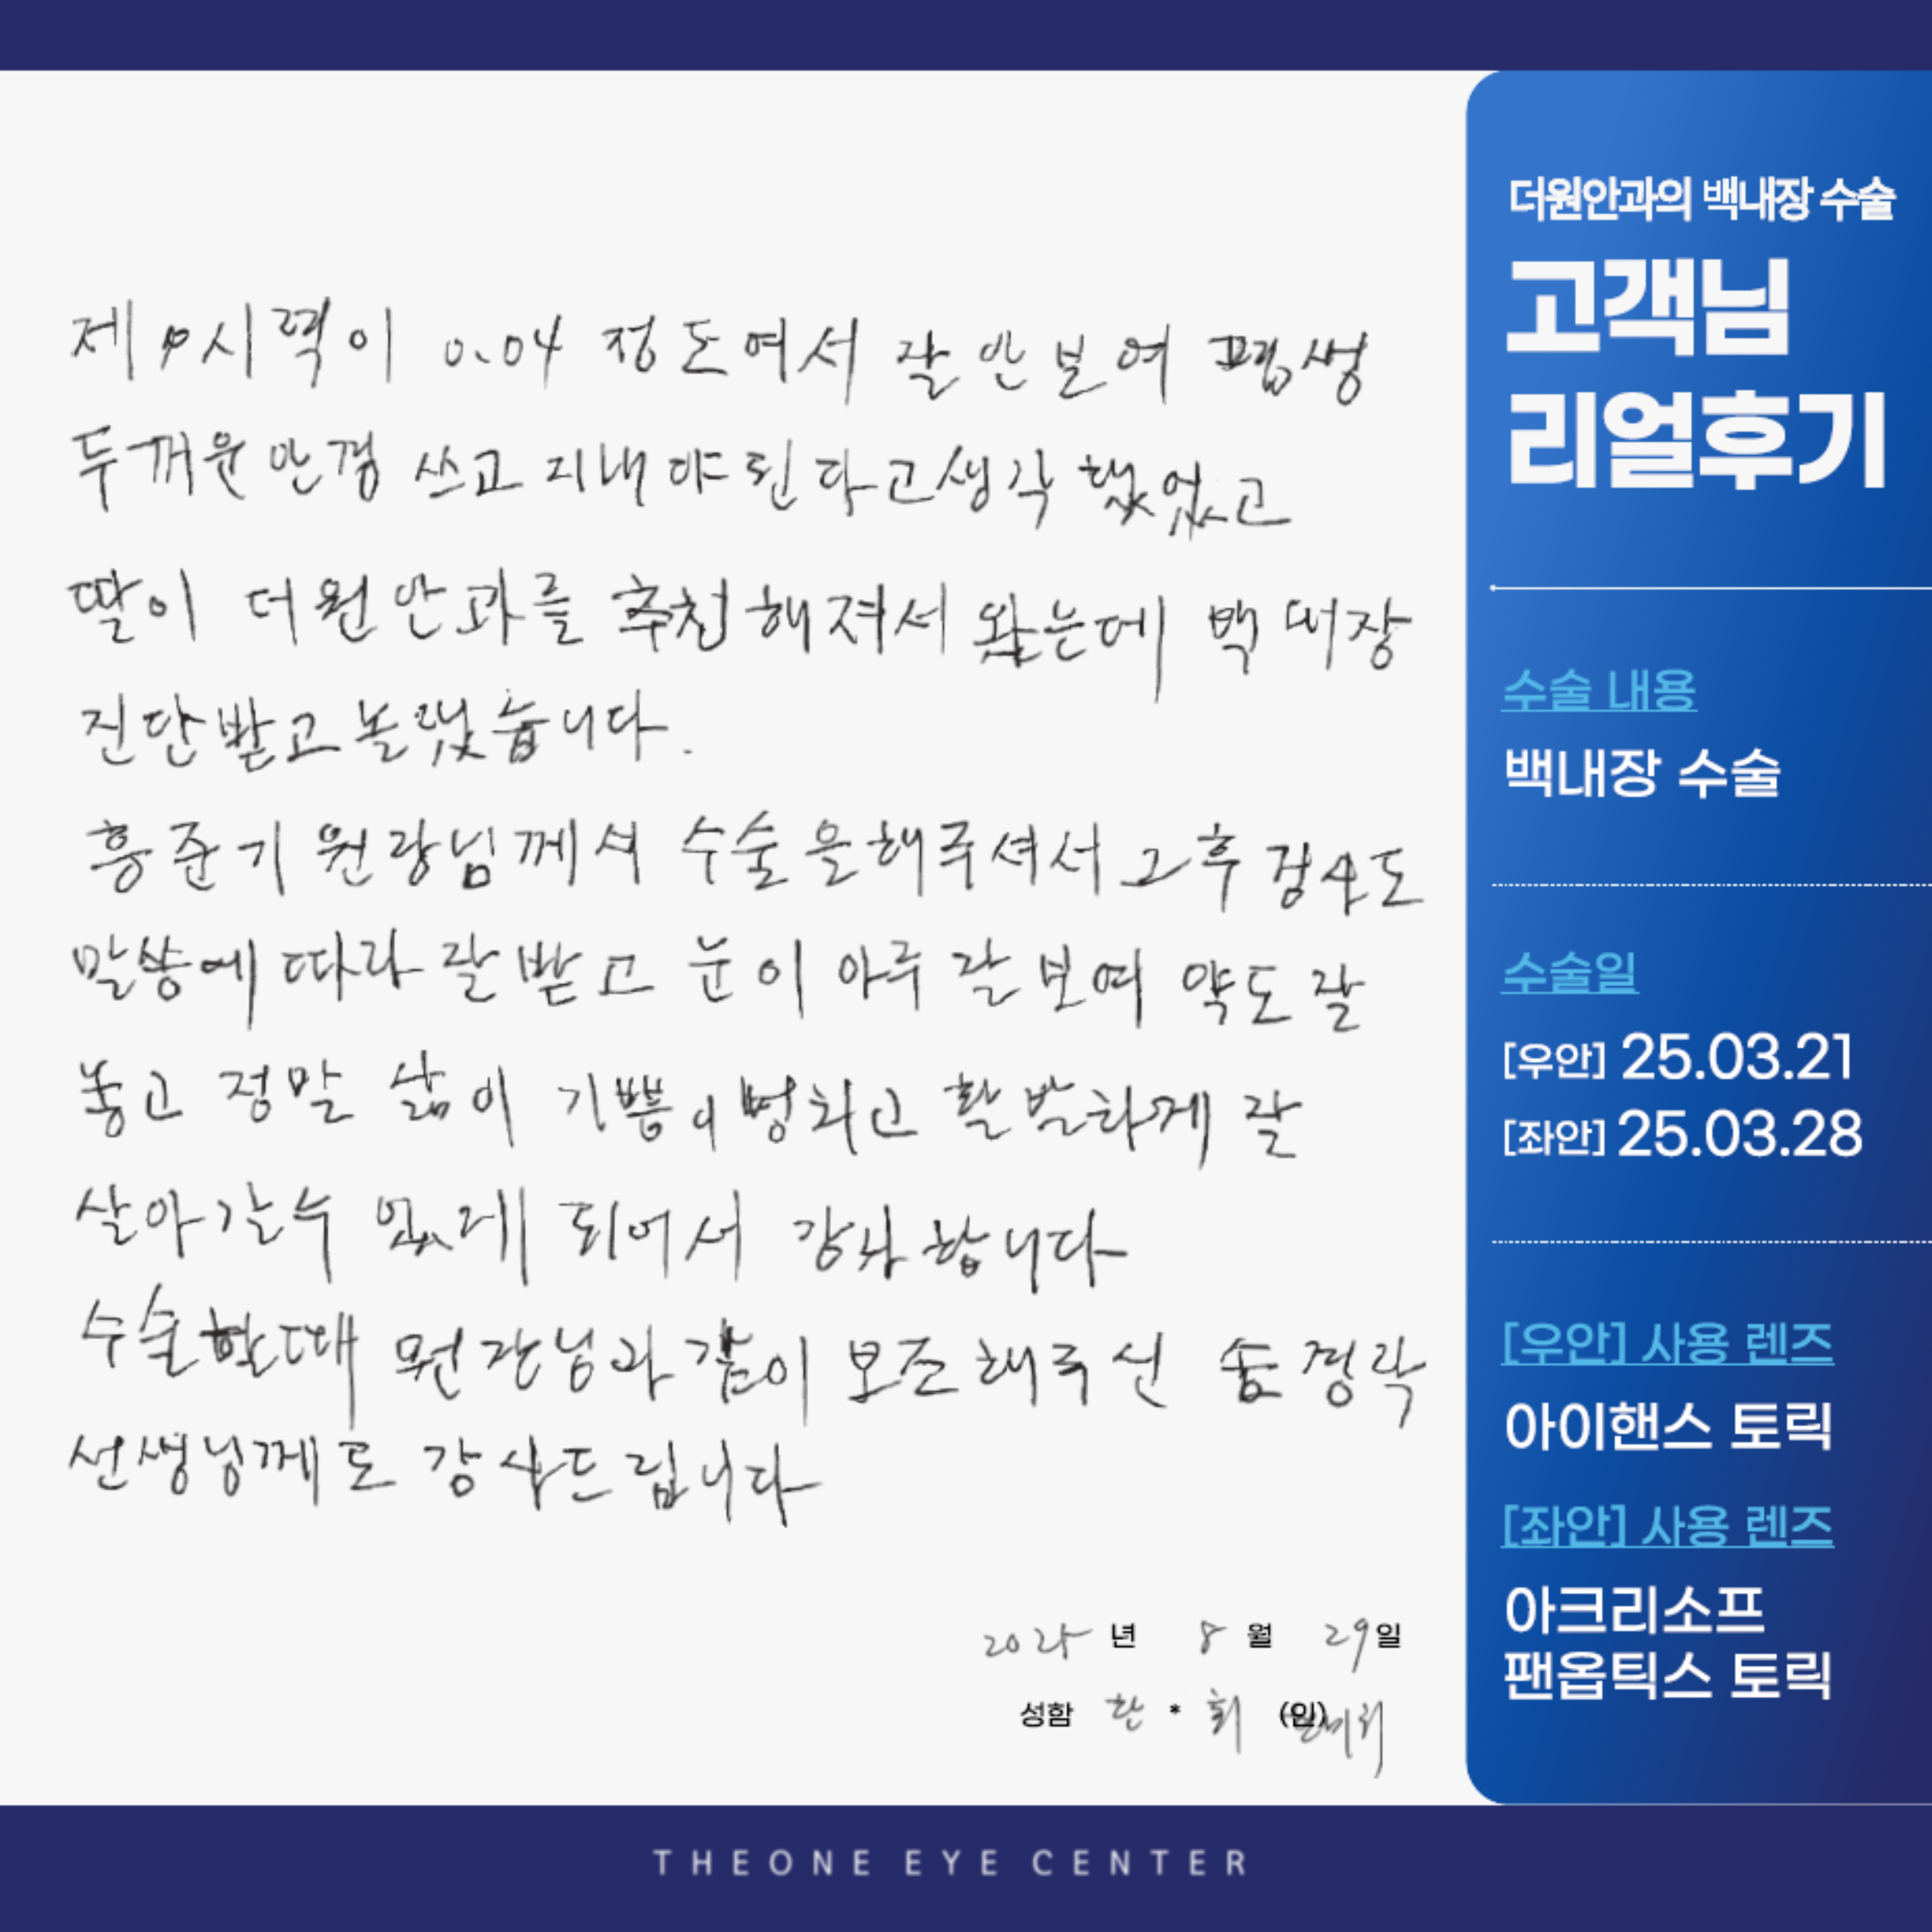 제 시력이 0.04 정도여서 잘 안보여 평생
두꺼운 안경 쓰고 지내야 된다고 생각 했었고
딸이 더원안과를 추천해져서 왔는데 백내장
진단받고 놀랬습니다.
홍준기 원장님께서 수술을해주셔서 그후 검사도
말씀에 따라 잘받고 눈이 아주 잘보여 약도 잘
놓고 정말 삶이 기쁨이 하고 활발하게 잘
살아갈수 있게 되어서 감사합니다
수술할때 원장님과 같이 보조해주신 송정락
선생님께도 감사드립니다
2025 년 8 월 29일
성함 한 * 희 (인)
더원안과의 백내장 수술
고객님
리얼후기
수술 내용
백내장 수술
수술일
[우안] 25.03.21
[좌안] 25.03.28
[우안] 사용 렌즈
아이핸스 토릭
[좌안] 사용 렌즈
아크리소프
팬옵틱스 토릭
THEONE EYE CENTER